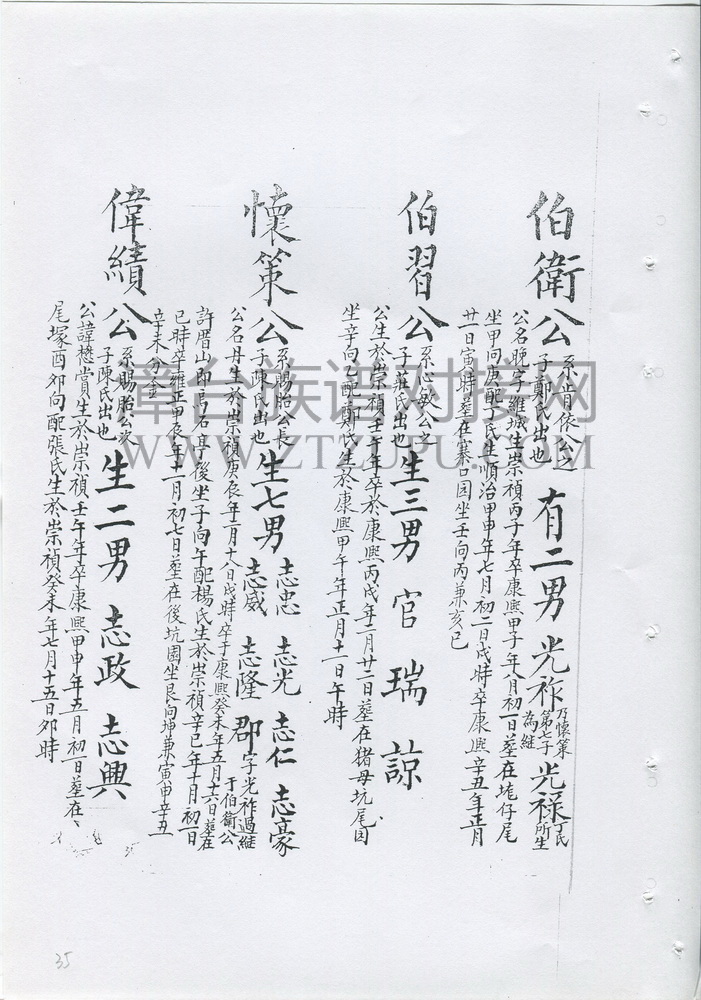 伯衛公 系肯依公之
子鄭氏出也 有二男 光祚 乃懷策
第七子
為継 光祿 丁氏
所生
公名晚字維城生崇禎丙子年卒康熙甲子年八月初一日葬在垅仔尾
坐甲向庚配丁氏生順治甲申年七月初二日戌時卒康熙辛丑年正月
廿一日寅時葬在寨口园坐壬向丙兼亥巳
伯習公 系心敏公之
子莊氏出也 生三男 官 瑞 諒
公生於崇禎壬午年卒於康熙丙戌年二月廿二日葬在猪母坑尾园
坐辛向乙配鄭氏生於康熙甲午年正月十一日午時
懷策公 系賜胎公長
子陳氏出也 生七男 志忠 志光 志仁 志豪
志威 志隆 郡 字光祚過継
于伯衛公
公名丹生於崇禎庚辰年二月十八日戌時卒于康熙癸未年五月十六日葬在
許厝山即烏石亭後坐子向午配楊氏生於崇禎辛巳年十月初一日
巳時卒雍正甲辰年十一月初七日葬在後坑園坐艮向坤兼寅甲辛丑
辛未分金
偉績公 系賜胎公次
子陳氏出也 生二男 志政 志興
公諱懋賞生於崇禎壬午年卒康熙甲申年五月初一日葬在、
尾塚酉夘向配張氏生於崇禎癸未年七月十五日夘時
章台族谱对接网
WWW.ZTZUPU.COM
35